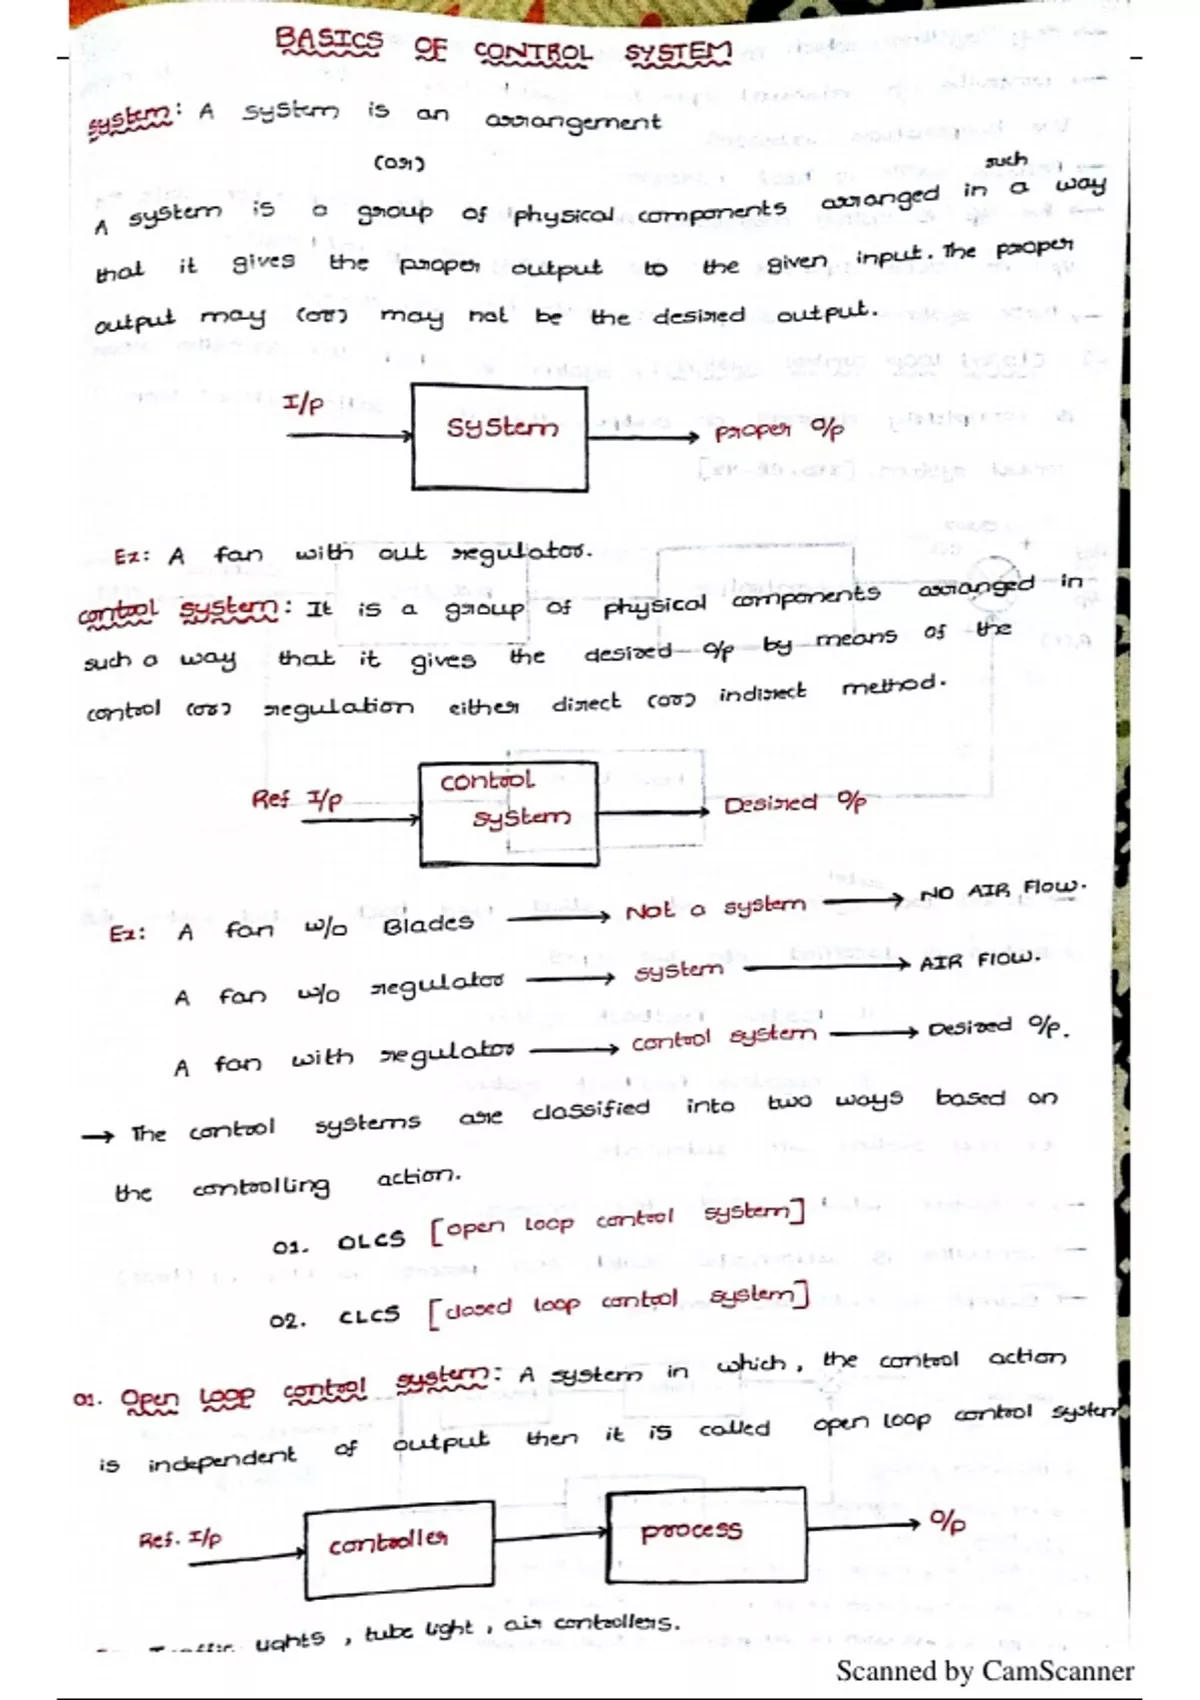 BASICS OF CONTROL SYSTEM
system: A system is an arrangement
(or)
such
A system is a group of physical components arranged in a way
that it gives the proper output to the given input. The proper
output may (or) may not be the desired output.
I/p system proper o/p
Ex: A fan with out regulator.
control system: It is a group of physical components arranged in
such a way that it gives the desired o/p by means of the
control (or) regulation either direct (or) indirect method.
Ref I/p control system Desired o/p
Ex: A fan w/o Blades → Not a system → NO AIR Flow.
A fan w/o regulator → system → AIR Flow.
A fan with regulator → control system → Desired o/p.
→ The control systems are classified into two ways based on
the controlling action.
01. OLCS [open loop control system]
02. CLCS [closed loop control system]
01. Open Loop control system: A system in which, the control action
is independent of output then it is called open loop control system
Ref. I/p controller process o/p
Traffic lights, tube light, air controllers.
Scanned by CamScanner